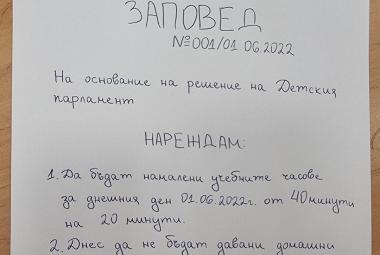 ЗАПОВЕД
№001/01.06.2022
На основание на решение на Детския
парламент
НАРЕЖДАМ:
1. Да бъдат намалени учебните часове
за днешния ден 01.06.2022г. от 40 минути
на 20 минути.
2. Днес да не бъдат давани домашни